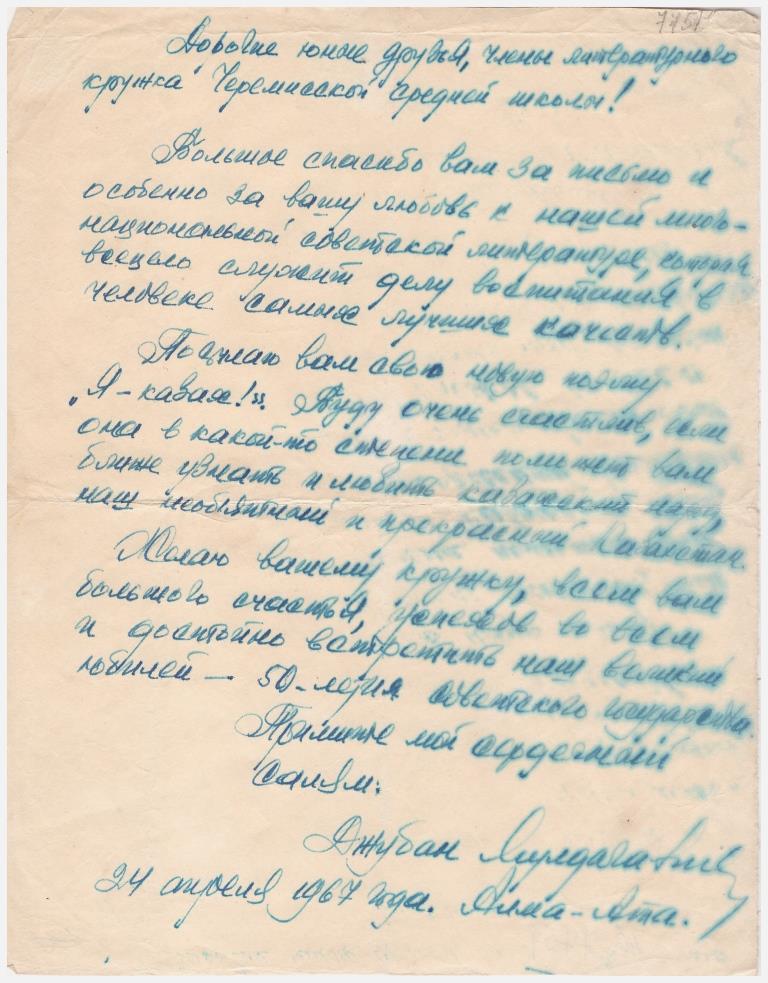 7751
Дорогие юные друзья, члены литературного
кружка Черемисской средней школы!
Большое спасибо вам за письмо и
особенно за вашу любовь к нашей много-
национальной советской литературе, которая
всецело служит делу воспитания в
человеке самых лучших качеств.
Посылаю вам свою новую поэму
„Я – казах!". Буду очень счастлив, если
она в какой-то степени поможет вам
ближе узнать и любить казахский народ,
наш необъятный и прекрасный Казахстан.
Желаю вашему кружку, всем вам
большого счастья, успехов во всем
и достойно встретить наш великий
юбилей — 50-летия советского государства.
Примите мой сердечный
салям.
Джубан Мулдагалиев
24 апреля 1967 года. Алма-Ата.